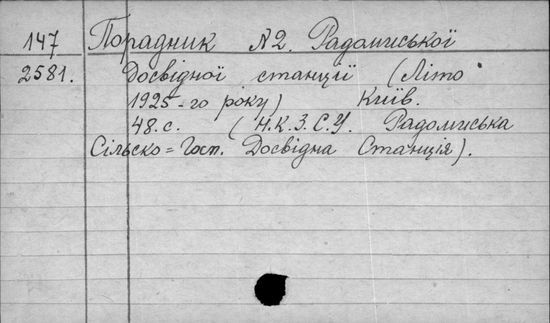 147 Порадник №2. Радомиської
2581. Досвідної станції (Літо
1925-го року) Київ.
48.с. (Н.К.З.С.У. Радомиська
Сільско=Госп. Досвідна Станція).